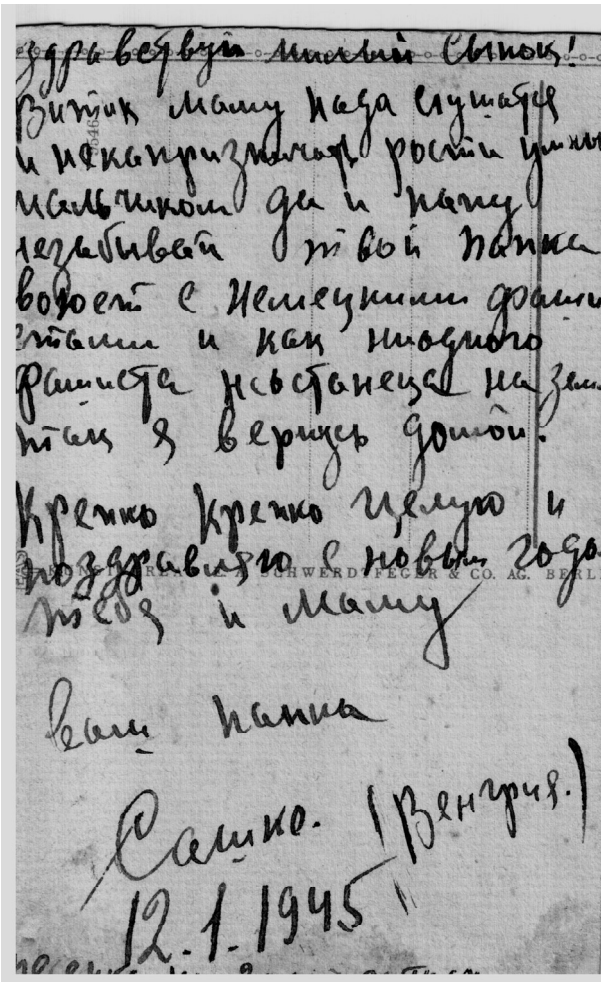 здравствуй милый Сынок!
Витик маму нада слушатся
и некапризничать рости умны
мальчиком да и папу
незабывай твой папка
воюет с Немецкими фаши
стами и как ниодного
фашиста неостанеца на зем
так я вернусь домой.
Крепко Крепко Целую и
поздравляю с новым годо
SCHWERDTFEGER & CO. AG. BERLI
тебя и маму
ваш папка
Сашко. (Венгрия.)
12.1.1945